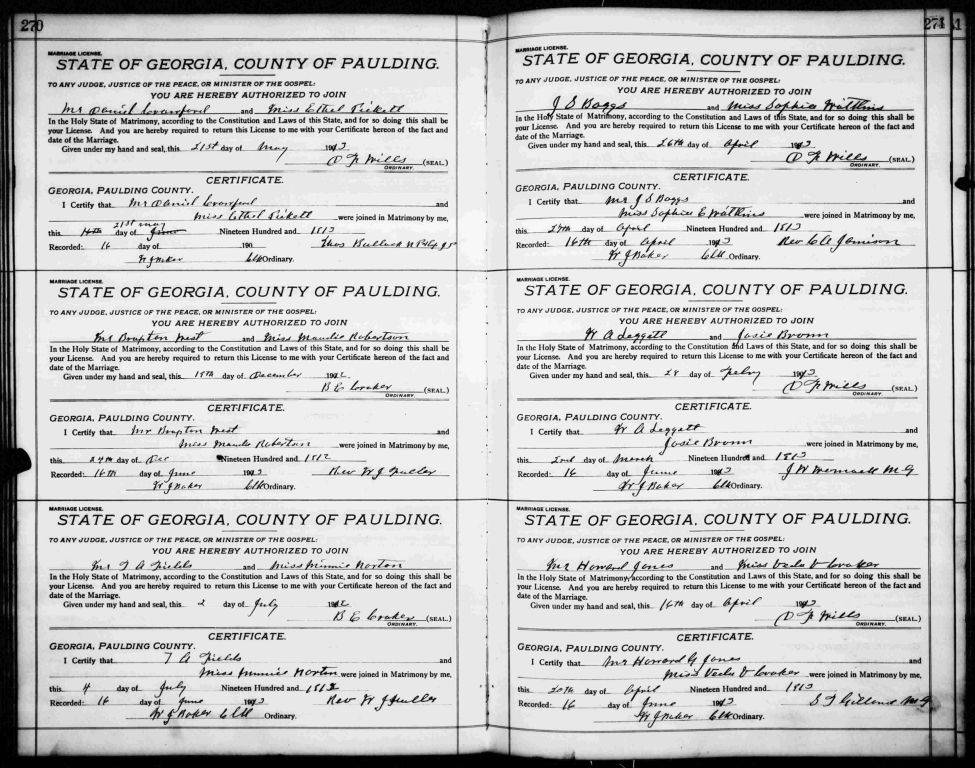 270
MARRIAGE LICENSE.
STATE OF GEORGIA, COUNTY OF PAULDING.
TO ANY JUDGE, JUSTICE OF THE PEACE, OR MINISTER OF THE GOSPEL:
YOU ARE HEREBY AUTHORIZED TO JOIN
Mr Daniel Crawford and Miss Ethel Pickett
In the Holy State of Matrimony, according to the Constitution and Laws of this State, and for so doing this shall be
your License. And you are hereby required to return this License to me with your Certificate hereof of the fact and
date of the Marriage.
Given under my hand and seal, this 21st day of May 1913
O F Mills (SEAL.)
ORDINARY.
CERTIFICATE.
GEORGIA, PAULDING COUNTY.
I Certify that Mr Daniel Crawford and
Miss Ethel Pickett were joined in Matrimony by me,
21st May
this day of Nineteen Hundred and 1913
Recorded: 16 day of 190 Thos Bullock
W J Baker Clk Ordinary.
MARRIAGE LICENSE.
STATE OF GEORGIA, COUNTY OF PAULDING.
TO ANY JUDGE, JUSTICE OF THE PEACE, OR MINISTER OF THE GOSPEL:
YOU ARE HEREBY AUTHORIZED TO JOIN
Mr Brupton West and Miss Maudie Robertson
In the Holy State of Matrimony, according to the Constitution and Laws of this State, and for so doing this shall be
your License. And you are hereby required to return this License to me with your Certificate hereof of the fact and
date of the Marriage.
Given under my hand and seal, this 19th day of December 1912
B E Croker (SEAL.)
ORDINARY.
CERTIFICATE.
GEORGIA, PAULDING COUNTY.
I Certify that Mr Brupton West and
Miss Maudie Robertson were joined in Matrimony by me,
this 24th day of Dec Nineteen Hundred and 1912
Recorded: 16th day of June 1913 Rev W J Fuller
W J Baker Clk Ordinary.
MARRIAGE LICENSE.
STATE OF GEORGIA, COUNTY OF PAULDING.
TO ANY JUDGE, JUSTICE OF THE PEACE, OR MINISTER OF THE GOSPEL:
YOU ARE HEREBY AUTHORIZED TO JOIN
Mr T A Fields and Miss Minnie Norton
In the Holy State of Matrimony, according to the Constitution and Laws of this State, and for so doing this shall be
your License. And you are hereby required to return this License to me with your Certificate hereof of the fact and
date of the Marriage.
Given under my hand and seal, this 2 day of July 1912
B E Croker (SEAL.)
ORDINARY.
CERTIFICATE.
GEORGIA, PAULDING COUNTY.
I Certify that T A Fields and
Miss Minnie Norton were joined in Matrimony by me,
this 4 day of July Nineteen Hundred and 1912
Recorded: 16 day of June 1913 Rev W J Fuller
W J Baker Clk Ordinary.
271
MARRIAGE LICENSE.
STATE OF GEORGIA, COUNTY OF PAULDING.
TO ANY JUDGE, JUSTICE OF THE PEACE, OR MINISTER OF THE GOSPEL:
YOU ARE HEREBY AUTHORIZED TO JOIN
J S Baggs and Miss Sophies Watkins
In the Holy State of Matrimony, according to the Constitution and Laws of this State, and for so doing this shall be
your License. And you are hereby required to return this License to me with your Certificate hereof of the fact and
date of the Marriage.
Given under my hand and seal, this 26th day of April 1913
O F Mills (SEAL.)
ORDINARY.
CERTIFICATE.
GEORGIA, PAULDING COUNTY.
I Certify that Mr J S Baggs and
Miss Sophies E Watkins were joined in Matrimony by me,
this 27th day of April Nineteen Hundred and 1913
Recorded: 16th day of April 1913 Rev C A Jamison
W J Baker Clk Ordinary.
MARRIAGE LICENSE.
STATE OF GEORGIA, COUNTY OF PAULDING.
TO ANY JUDGE, JUSTICE OF THE PEACE, OR MINISTER OF THE GOSPEL:
YOU ARE HEREBY AUTHORIZED TO JOIN
W A Leggett and Josie Brown
In the Holy State of Matrimony, according to the Constitution and Laws of this State, and for so doing this shall be
your License. And you are hereby required to return this License to me with your Certificate hereof of the fact and
date of the Marriage.
Given under my hand and seal, this 28 day of Febry 1913
O F Mills (SEAL.)
ORDINARY.
CERTIFICATE.
GEORGIA, PAULDING COUNTY.
I Certify that W A Leggett and
Josie Brown were joined in Matrimony by me,
this 2nd day of March Nineteen Hundred and 1913
Recorded: 16 day of June 1913 J W Womack M G
W J Baker Clk Ordinary.
MARRIAGE LICENSE.
STATE OF GEORGIA, COUNTY OF PAULDING.
TO ANY JUDGE, JUSTICE OF THE PEACE, OR MINISTER OF THE GOSPEL:
YOU ARE HEREBY AUTHORIZED TO JOIN
Mr Howard Jones and Miss Veda V Croker
In the Holy State of Matrimony, according to the Constitution and Laws of this State, and for so doing this shall be
your License. And you are hereby required to return this License to me with your Certificate hereof of the fact and
date of the Marriage.
Given under my hand and seal, this 16th day of April 1913
O F Mills (SEAL.)
ORDINARY.
CERTIFICATE.
GEORGIA, PAULDING COUNTY.
I Certify that Mr Howard G Jones and
Miss Veda V Croker were joined in Matrimony by me,
this 20th day of April Nineteen Hundred and 1913
Recorded: 16 day of June 1913 S T Gilland M G
W J Baker Clk Ordinary.